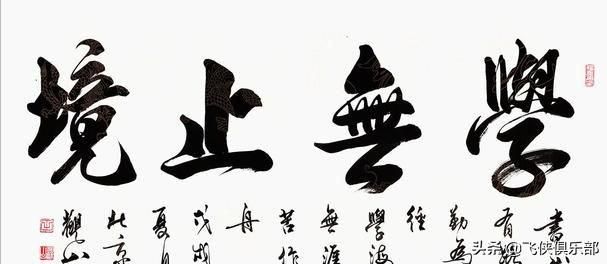 學無止境
書山
有路
勤為
徑
學海
無涯
苦作
舟
戊戌
夏月
北京
觀山
头条 @飞侠俱乐部